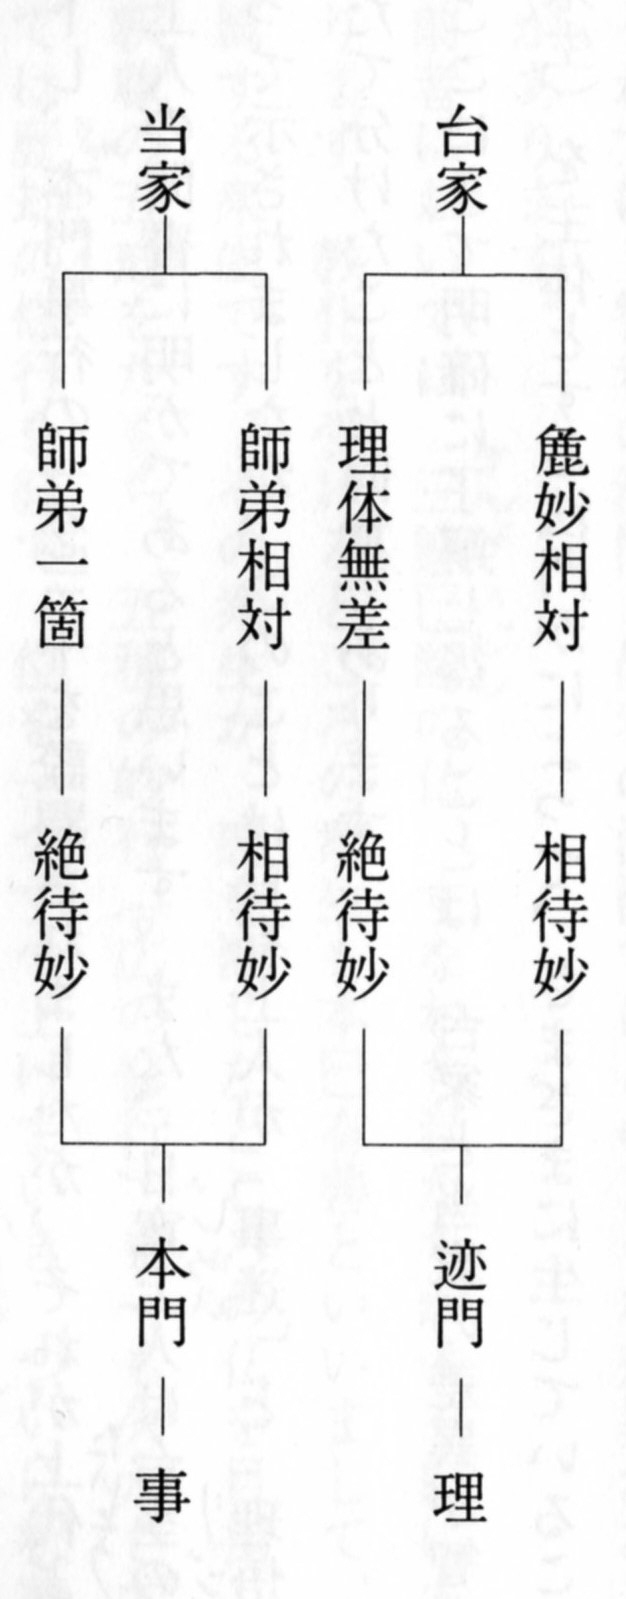 台家
麁妙相対
相待妙
理体無差
絶待妙
迹門
理
当家
師弟相対
相待妙
師弟一箇
絶待妙
本門
事